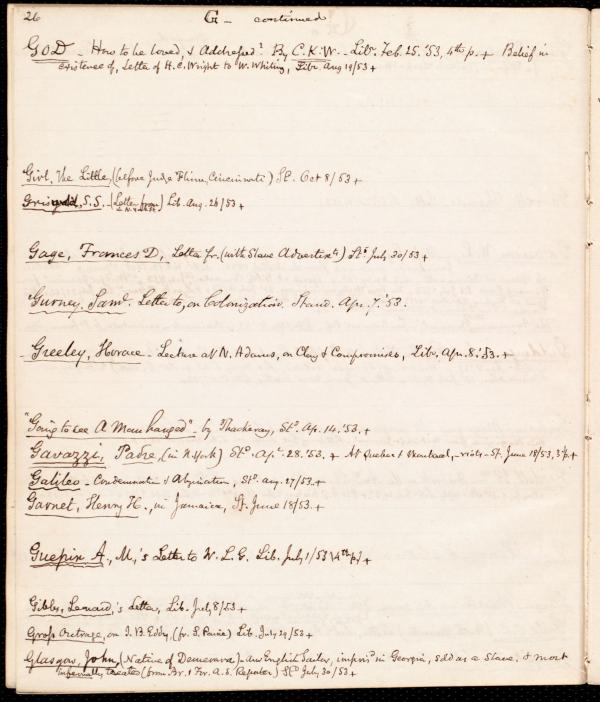 26 G - continued
GOD - How to be loved, & Addressed? By C.K.W. - Libr. Feb. 25. '53, 4th p. + Belief in
existence of, Letter of H.C. Wright to W. Whiting, Libr. Aug 19/53 +
Girl, The Little, (before Judge Flinn, Cincinnati) St. Oct 8/53 +
Griswold, S.S. (Letter from) Lib. Aug. 26/53 +
Gage, Frances D, Letter fr. (with Slave Advertisets) Sts July 30/53 +
Gurney, Saml. Letter to, on Colonization. Stand. Apr. 7. '53.
Greeley, Horace - Lecture at N. Adams, on Clay & Compromises, Libr. Apr. 8. '53. +
"Going to see A Man hanged" - by Thackeray, Std. Ap. 14. '53. +
Gavazzi, Padre, (in N. York) Std. Apl. 28. '53. + At Quebec & Montreal, - riots - St. June 18/53, 3d p. +
Galileo - Condemnation & Abjuration, Std. Aug. 27/53. +
Garnet, Henry H., in Jamaica, St. June 18/53. +
Guepin A., M,'s Letter to W. L. G. Lib. July 1/53 (4th p) +
Gibbs, Leonard,'s Letter, Lib. July 8/53 +
Gross Outrage, on I. B. Eddy, (fr. S. Paine) Lib. July 29/53 +
Glasgow, John, (Native of Demerara) - An English Sailor, imprisd in Georgia, sold as a Slave, & most
infernally treated (from Br. & For. A. S. Reporter) Std July 30/53 +